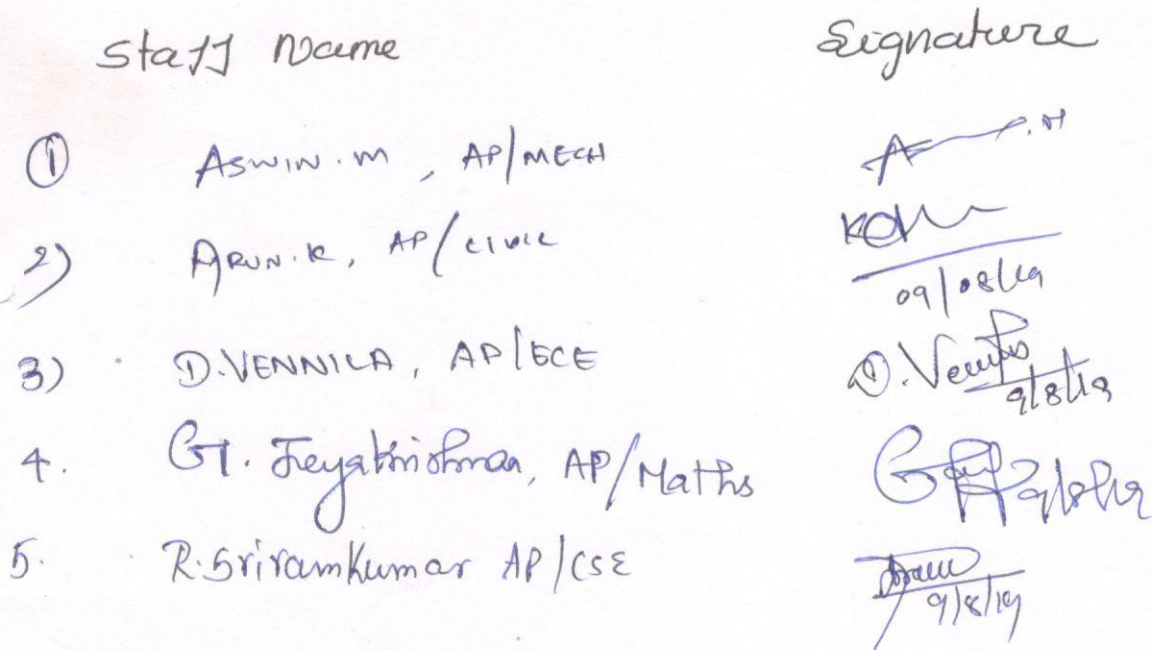 Staff Name Signature
① ASWIN.M, AP/MECH
2) ARUN.K, AP/CIVIL
09/08/19
3) D.VENNILA, AP/ECE D.
9/8/19
4. G. Jeyakrishnan, AP/Maths 9/8/19
5. R.Sriramkumar AP/CSE
9/8/19